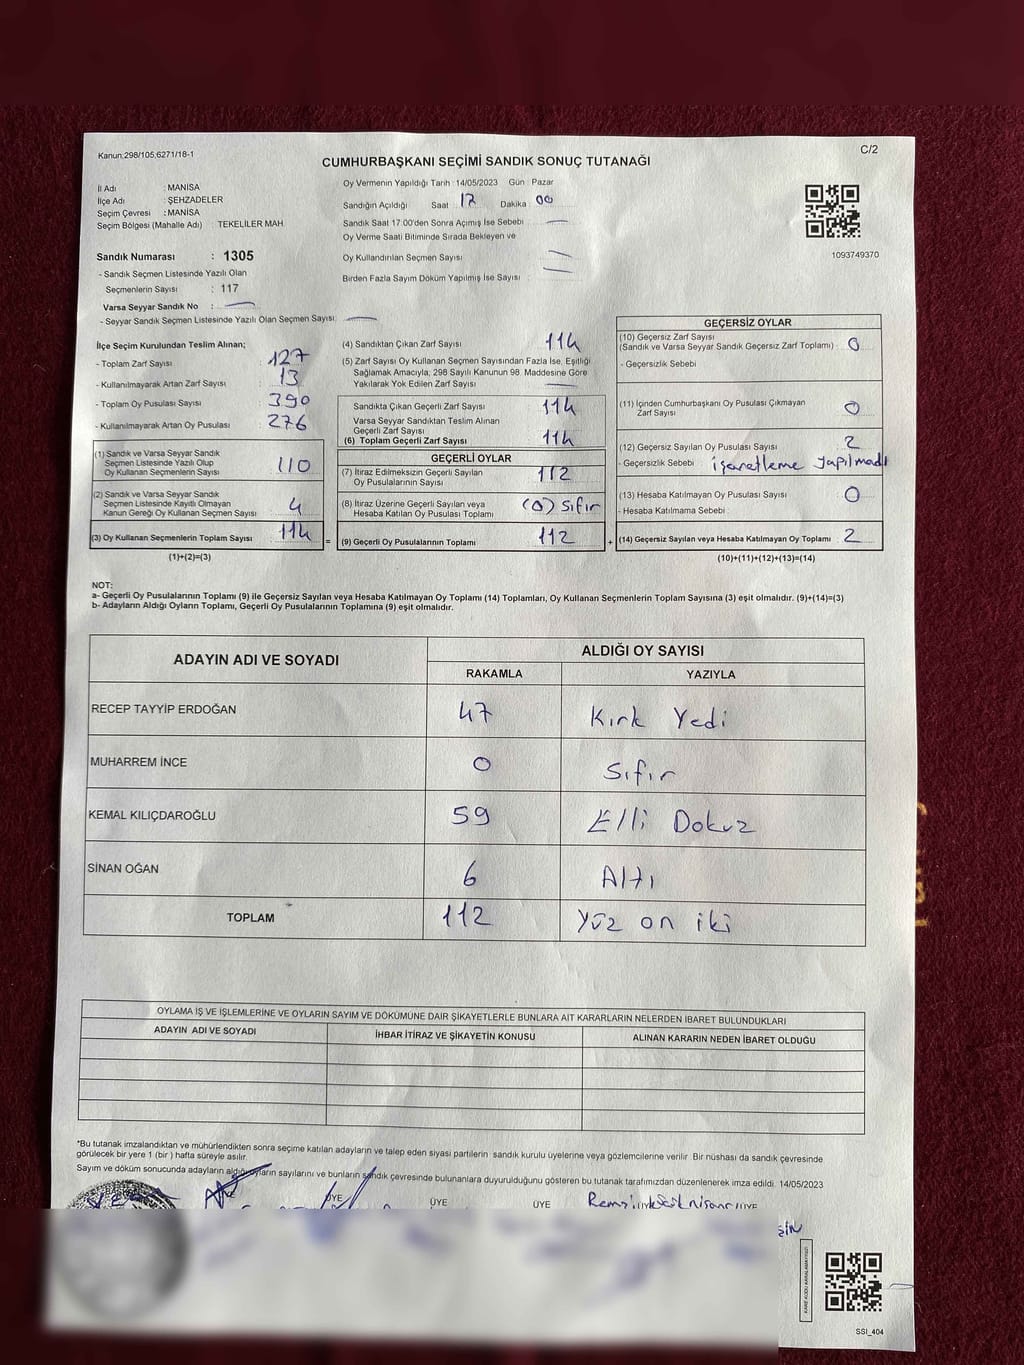 Kanun:298/105,6271/18-1
C/2
CUMHURBAŞKANI SEÇİMİ SANDIK SONUÇ TUTANAĞI
İl Adı : MANİSA
İlçe Adı : ŞEHZADELER
Seçim Çevresi : MANİSA
Seçim Bölgesi (Mahalle Adı) TEKELİLER MAH.
Sandık Numarası : 1305
- Sandık Seçmen Listesinde Yazılı Olan
Seçmenlerin Sayısı : 117
Varsa Seyyar Sandık No :
- Seyyar Sandık Seçmen Listesinde Yazılı Olan Seçmen Sayısı:
Oy Vermenin Yapıldığı Tarih :14/05/2023 Gün : Pazar
Sandığın Açıldığı Saat : 17 Dakika : 00
Sandık Saat 17:00'den Sonra Açılmış İse Sebebi :
Oy Verme Saati Bitiminde Sırada Bekleyen ve
Oy Kullandırılan Seçmen Sayısı :
Birden Fazla Sayım Döküm Yapılmış İse Sayısı :
1093749370
İlçe Seçim Kurulundan Teslim Alınan;
- Toplam Zarf Sayısı : 127
- Kullanılmayarak Artan Zarf Sayısı : 13
- Toplam Oy Pusulası Sayısı : 390
- Kullanılmayarak Artan Oy Pusulası : 276
(1) Sandık ve Varsa Seyyar Sandık
Seçmen Listesinde Yazılı Olup
Oy Kullanan Seçmenlerin Sayısı : 110
(2) Sandık ve Varsa Seyyar Sandık
Seçmen Listesinde Kayıtlı Olmayan
Kanun Gereği Oy Kullanan Seçmen Sayısı : 4
(3) Oy Kullanan Seçmenlerin Toplam Sayısı : 114
(1)+(2)=(3)
(4) Sandıktan Çıkan Zarf Sayısı : 114
(5) Zarf Sayısı Oy Kullanan Seçmen Sayısından Fazla İse, Eşitliği
Sağlamak Amacıyla; 298 Sayılı Kanunun 98. Maddesine Göre
Yakılarak Yok Edilen Zarf Sayısı :
Sandıkta Çıkan Geçerli Zarf Sayısı : 114
Varsa Seyyar Sandıktan Teslim Alınan
Geçerli Zarf Sayısı :
(6) Toplam Geçerli Zarf Sayısı : 114
GEÇERLİ OYLAR
(7) İtiraz Edilmeksizin Geçerli Sayılan
Oy Pusulalarının Sayısı : 112
(8) İtiraz Üzerine Geçerli Sayılan veya
Hesaba Katılan Oy Pusulası Toplamı : (0) Sıfır
= (9) Geçerli Oy Pusulalarının Toplamı : 112
GEÇERSİZ OYLAR
(10) Geçersiz Zarf Sayısı
(Sandık ve Varsa Seyyar Sandık Geçersiz Zarf Toplamı) : 0
- Geçersizlik Sebebi
(11) İçinden Cumhurbaşkanı Oy Pusulası Çıkmayan
Zarf Sayısı : 0
(12) Geçersiz Sayılan Oy Pusulası Sayısı : 2
- Geçersizlik Sebebi : işaretleme yapılmadı
(13) Hesaba Katılmayan Oy Pusulası Sayısı : 0
- Hesaba Katılmama Sebebi :
+ (14) Geçersiz Sayılan veya Hesaba Katılmayan Oy Toplamı : 2
(10)+(11)+(12)+(13)=(14)
NOT:
a- Geçerli Oy Pusulalarının Toplamı (9) ile Geçersiz Sayılan veya Hesaba Katılmayan Oy Toplamı (14) Toplamları, Oy Kullanan Seçmenlerin Toplam Sayısına (3) eşit olmalıdır. (9)+(14)=(3)
b- Adayların Aldığı Oyların Toplamı, Geçerli Oy Pusulalarının Toplamına (9) eşit olmalıdır.
ADAYIN ADI VE SOYADI ALDIĞI OY SAYISI
RAKAMLA YAZIYLA
RECEP TAYYİP ERDOĞAN 47 Kırk Yedi
MUHARREM İNCE 0 Sıfır
KEMAL KILIÇDAROĞLU 59 Elli Dokuz
SİNAN OĞAN 6 Altı
TOPLAM 112 Yüz on iki
OYLAMA İŞ VE İŞLEMLERİNE VE OYLARIN SAYIM VE DÖKÜMÜNE DAİR ŞİKAYETLERLE BUNLARA AİT KARARLARIN NELERDEN İBARET BULUNDUKLARI
ADAYIN ADI VE SOYADI İHBAR İTİRAZ VE ŞİKAYETİN KONUSU ALINAN KARARIN NEDEN İBARET OLDUĞU
*Bu tutanak imzalandıktan ve mühürlendikten sonra seçime katılan adayların ve talep eden siyasi partilerin sandık kurulu üyelerine veya gözlemcilerine verilir. Bir nüshası da sandık çevresinde
görülecek bir yere 1 (bir ) hafta süreyle asılır.
Sayım ve döküm sonucunda adayların aldığı oyların sayılarını ve bunların sandık çevresinde bulunanlara duyurulduğunu gösteren bu tutanak tarafımızdan düzenlenerek imza edildi. 14/05/2023
ÜYE ÜYE ÜYE ÜYE
SSI_404